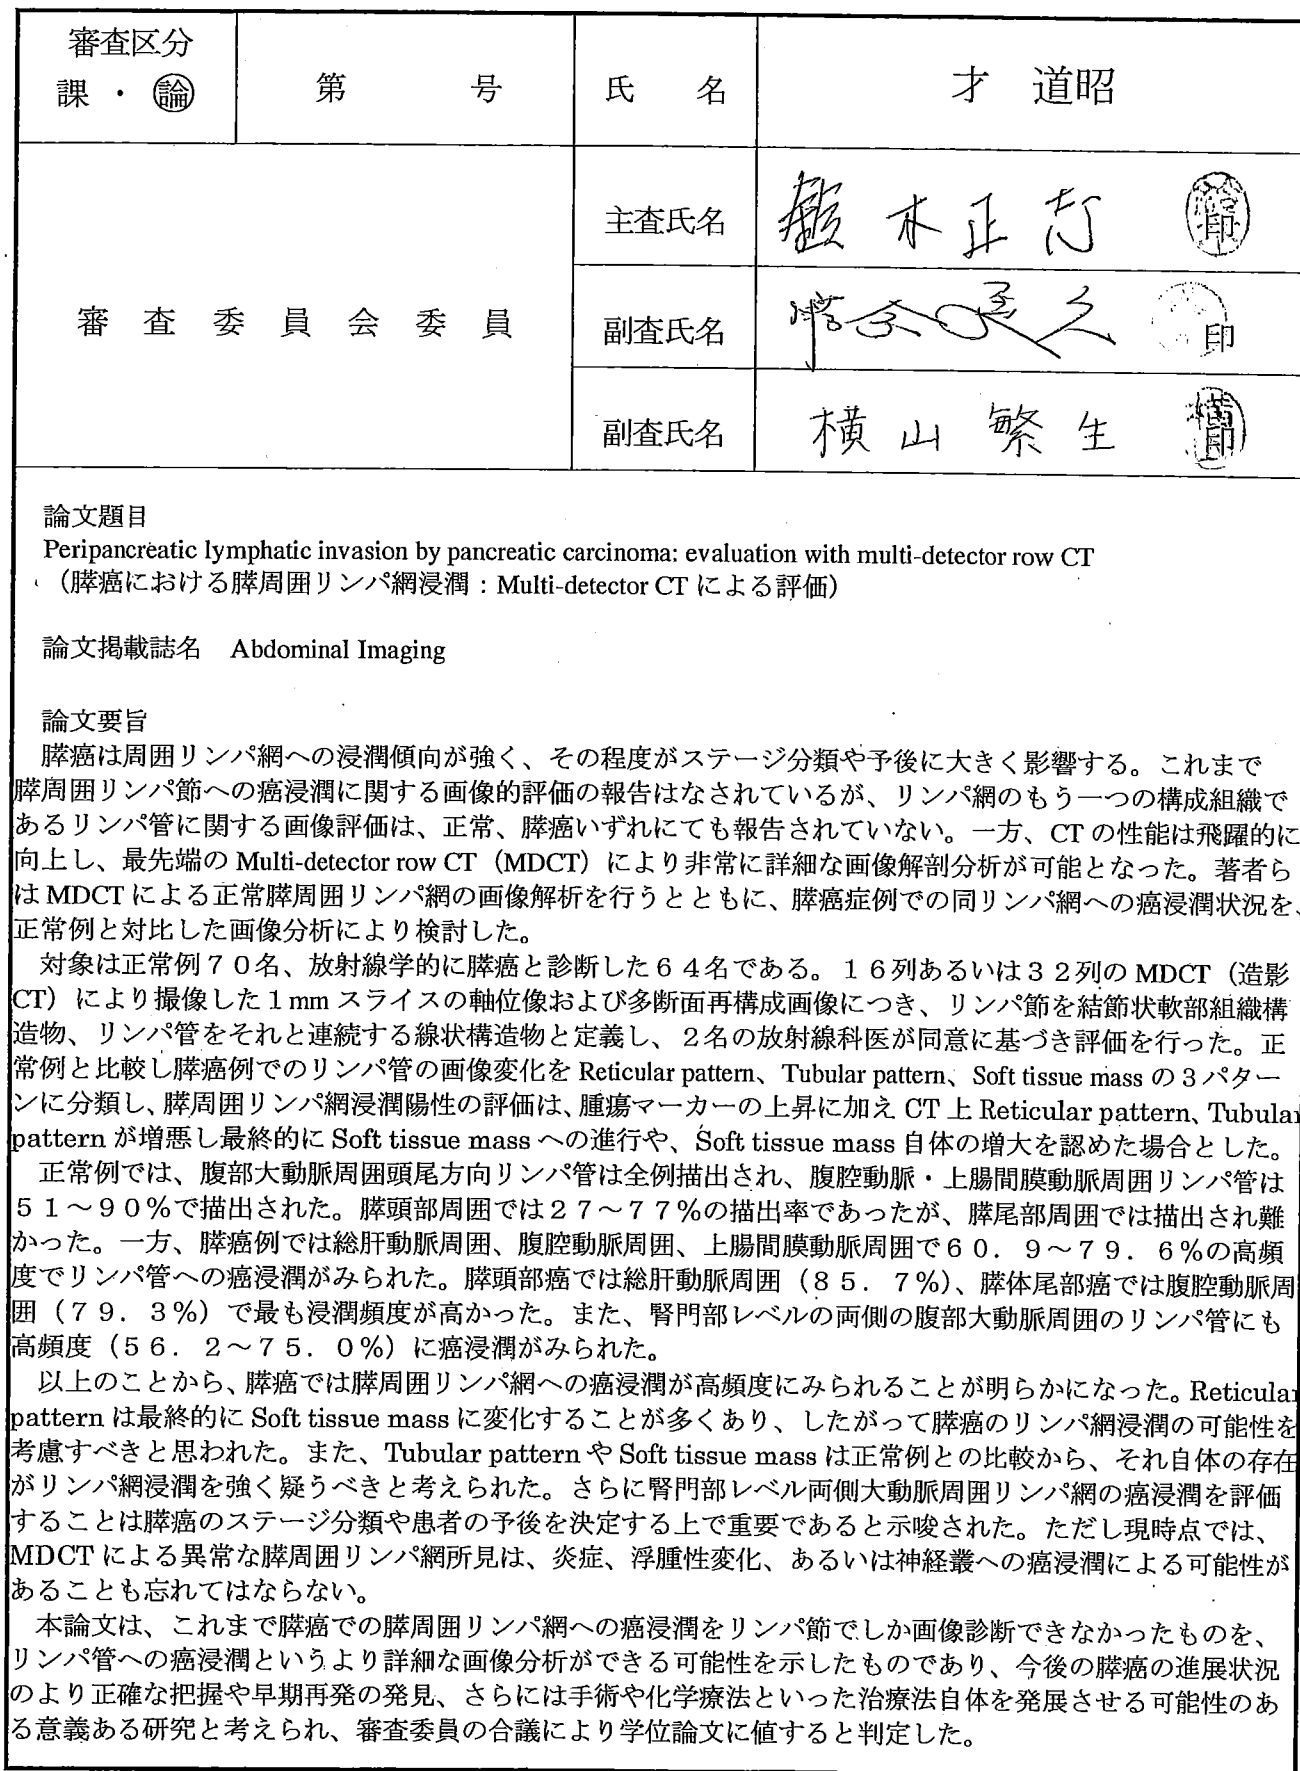 審査区分
課・論
第 号
氏 名
才 道昭
審査委員会委員
主査氏名
木正
印
副査氏名
印
副査氏名
横山繁生
印
論文題目
Peripancreatic lymphatic invasion by pancreatic carcinoma: evaluation with multi-detector row CT
（膵癌における膵周囲リンパ網浸潤：Multi-detector CT による評価）
論文掲載誌名 Abdominal Imaging
論文要旨
膵癌は周囲リンパ網への浸潤傾向が強く、その程度がステージ分類や予後に大きく影響する。これまで
膵周囲リンパ節への癌浸潤に関する画像的評価の報告はなされているが、リンパ網のもう一つの構成組織で
あるリンパ管に関する画像評価は、正常、膵癌いずれにても報告されていない。一方、CT の性能は飛躍的に
向上し、最先端の Multi-detector row CT（MDCT）により非常に詳細な画像解剖分析が可能となった。著者ら
は MDCT による正常膵周囲リンパ網の画像解析を行うとともに、膵癌症例での同リンパ網への癌浸潤状況を、
正常例と対比した画像分析により検討した。
対象は正常例７０名、放射線学的に膵癌と診断した６４名である。１６列あるいは３２列の MDCT（造影
CT）により撮像した１mm スライスの軸位像および多断面再構成画像につき、リンパ節を結節状軟部組織構
造物、リンパ管をそれと連続する線状構造物と定義し、２名の放射線科医が同意に基づき評価を行った。正
常例と比較し膵癌例でのリンパ管の画像変化を Reticular pattern、Tubular pattern、Soft tissue mass の３パター
ンに分類し、膵周囲リンパ網浸潤陽性の評価は、腫瘍マーカーの上昇に加え CT 上 Reticular pattern、Tubular
pattern が増悪し最終的に Soft tissue mass への進行や、Soft tissue mass 自体の増大を認めた場合とした。
正常例では、腹部大動脈周囲頭尾方向リンパ管は全例描出され、腹腔動脈・上腸間膜動脈周囲リンパ管は
５１～９０％で描出された。膵頭部周囲では２７～７７％の描出率であったが、膵尾部周囲では描出され難
かった。一方、膵癌例では総肝動脈周囲、腹腔動脈周囲、上腸間膜動脈周囲で６０．９～７９．６％の高頻
度でリンパ管への癌浸潤がみられた。膵頭部癌では総肝動脈周囲（８５．７％）、膵体尾部癌では腹腔動脈周
囲（７９．３％）で最も浸潤頻度が高かった。また、腎門部レベルの両側の腹部大動脈周囲のリンパ管にも
高頻度（５６．２～７５．０％）に癌浸潤がみられた。
以上のことから、膵癌では膵周囲リンパ網への癌浸潤が高頻度にみられることが明らかになった。Reticular
pattern は最終的に Soft tissue mass に変化することが多くあり、したがって膵癌のリンパ網浸潤の可能性を
考慮すべきと思われた。また、Tubular pattern や Soft tissue mass は正常例との比較から、それ自体の存在
がリンパ網浸潤を強く疑うべきと考えられた。さらに腎門部レベル両側大動脈周囲リンパ網の癌浸潤を評価
することは膵癌のステージ分類や患者の予後を決定する上で重要であると示唆された。ただし現時点では、
MDCT による異常な膵周囲リンパ網所見は、炎症、浮腫性変化、あるいは神経叢への癌浸潤による可能性が
あることも忘れてはならない。
本論文は、これまで膵癌での膵周囲リンパ網への癌浸潤をリンパ節でしか画像診断できなかったものを、
リンパ管への癌浸潤というより詳細な画像分析ができる可能性を示したものであり、今後の膵癌の進展状況
のより正確な把握や早期再発の発見、さらには手術や化学療法といった治療法自体を発展させる可能性のあ
る意義ある研究と考えられ、審査委員の合議により学位論文に値すると判定した。